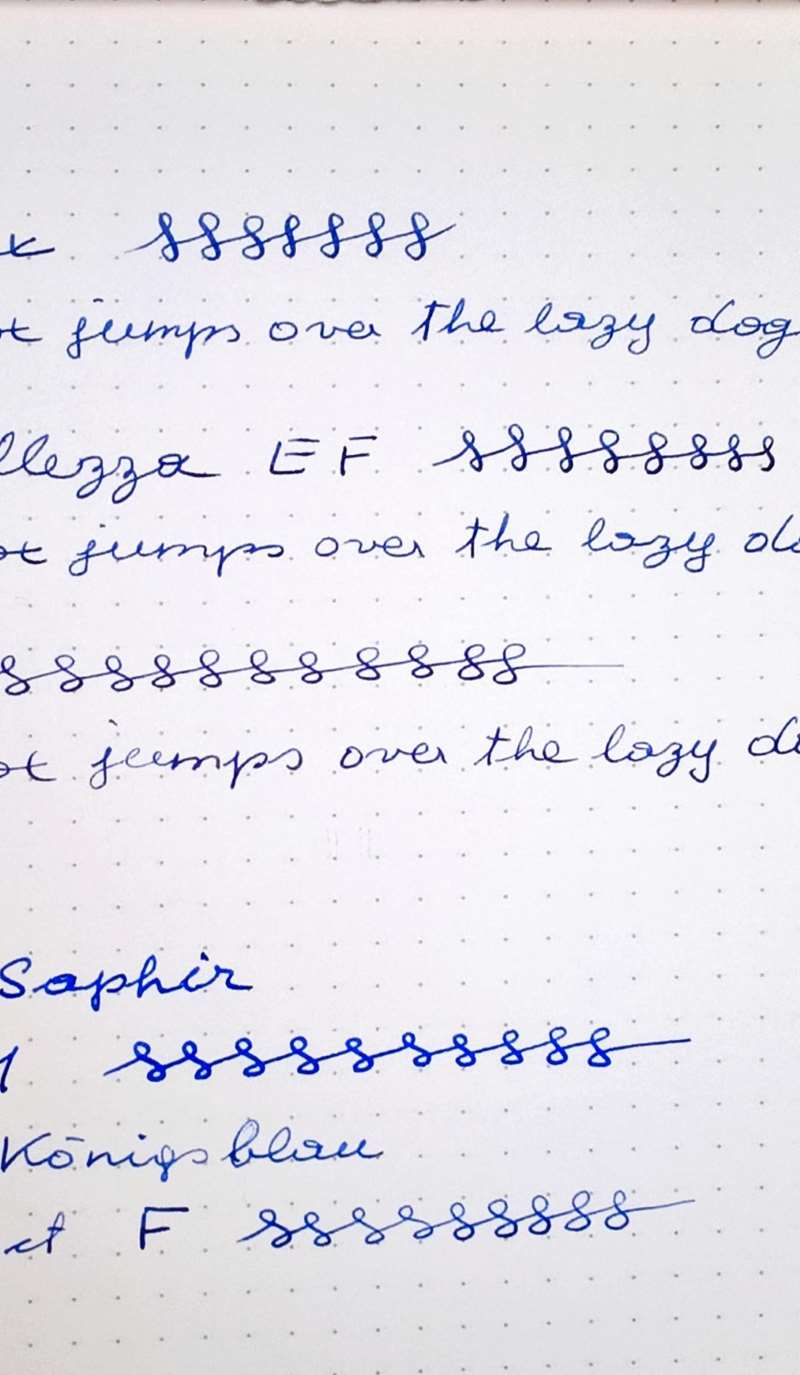 jumps over the lazy dog
EF
jumps over the lazy
jumps over the lazy
Saphir
Königsblau
F